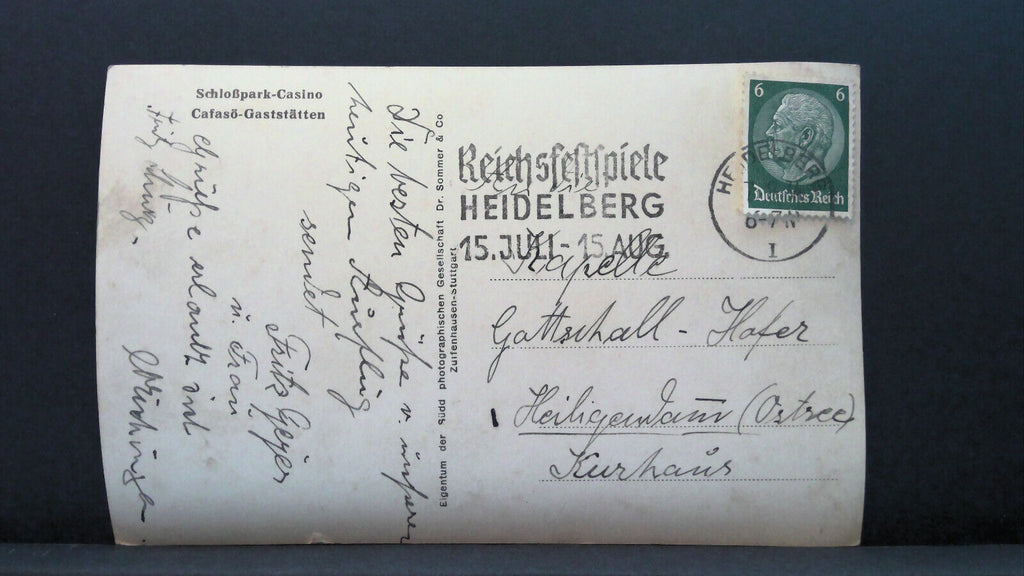 Schloßpark-Casino
Cafasö-Gaststätten
Die besten Grüße v. unserem
heutigen Ausflug
sendet
Fritz Geyer
u. Frau
Grüße erlaubt sich
Eigentum der Südd photographischen Gesellschaft Dr. Sommer & Co
Zuffenhausen-Stuttgart
Reichsfestspiele
HEIDELBERG
15. JULI - 15. AUG.
HEIDELBERG
6-7 N
1
6 6
Deutsches Reich
An die
Kapelle
Gottschall - Hofer
Heiligendamm (Ostsee)
Kurhaus